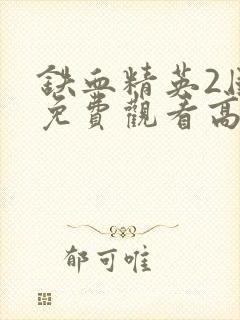 铁血精英2
免費觀看高
郁可唯